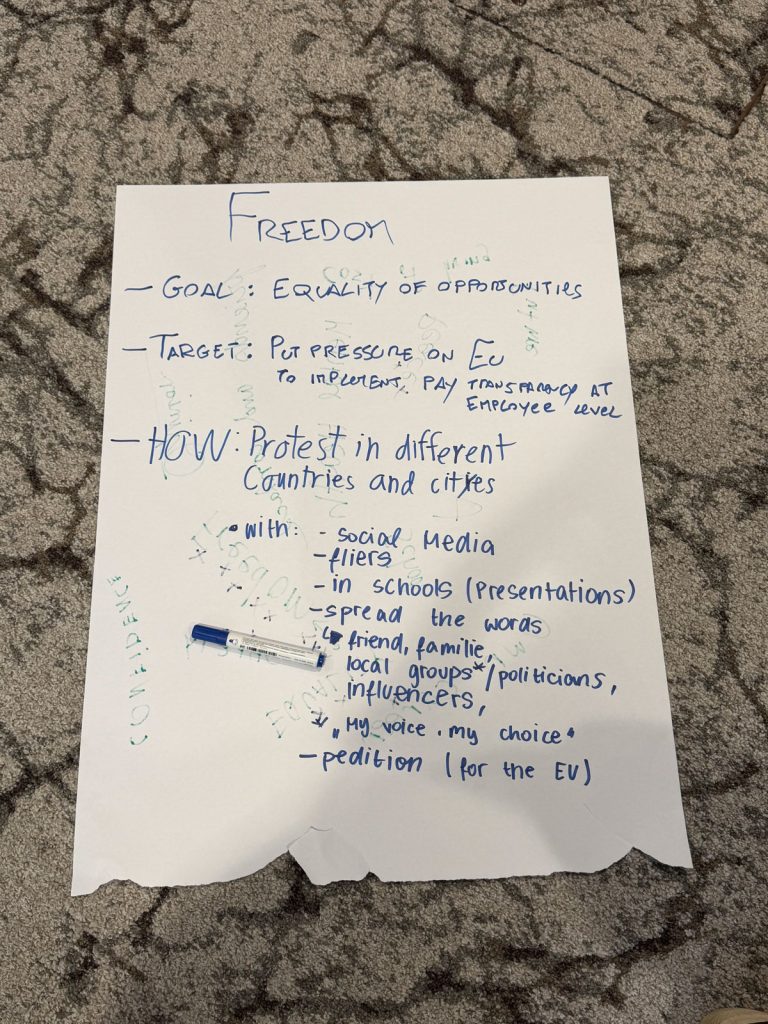 FREEDOM
— GOAL: EQUALITY OF OPPORTUNITIES
— TARGET: PUT PRESSURE ON EU
TO IMPLEMENT. PAY TRANSPARENCY AT
EMPLOYEE LEVEL
— HOW: Protest in different
Countries and cities
• with: - social Media
- fliers
- in schools (presentations)
- spread the words
↳ friend, familie,
local groups*/politicians,
influencers,
* „My voice . my choice“
- pedition (for the EU)
CONFIDENCE